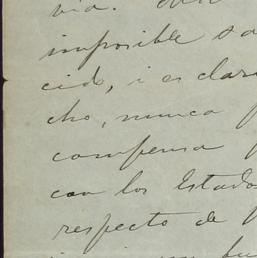 via.
imposible sa
cido, i es clar
cho, nunca
compensa
con los Estado
respecto de